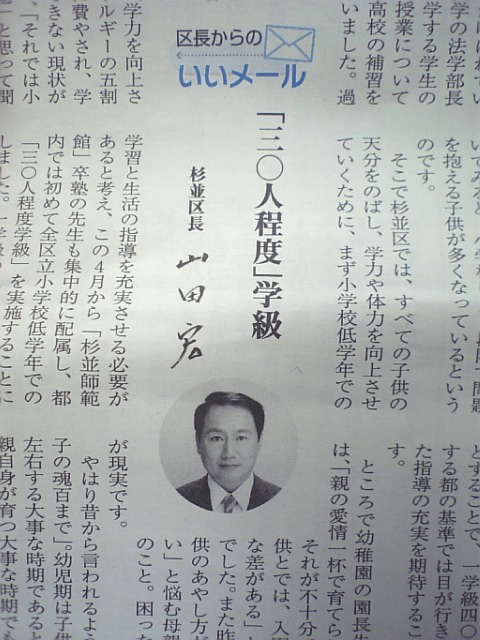 区長からの
いいメール
「三〇人程度」学級
杉並区長
山田宏
学の法学部長
学する学生の
授業について
高校の補習を
いました。過
学力を向上さ
ルギーの五割
費やされ、学
きない現状が
「それでは小
」と思って聞
を抱える子供が多くなっているという
のです。
そこで杉並区では、すべての子供の
天分をのばし、学力や体力を向上させ
ていくために、まず小学校低学年での
学習と生活の指導を充実させる必要が
あると考え、この4月から「杉並師範
館」卒塾の先生も集中的に配属し、都
内では初めて全区立小学校低学年での
「三〇人程度学級」を実施することに
しました。
とすることで、一学級四〇
する都の基準では目が行き
た指導の充実を期待するこ
す。
ところで幼稚園の園長先
は、「親の愛情一杯で育てら
それが不十分
供とでは、入園
な差がある」と
でした。また昨
供のあやし方が
い」と悩む母親
のこと。困った
が現実です。
やはり昔から言われるよう
子の魂百まで」。幼児期は子供
左右する大事な時期であると
親自身が育つ大事な時期でも